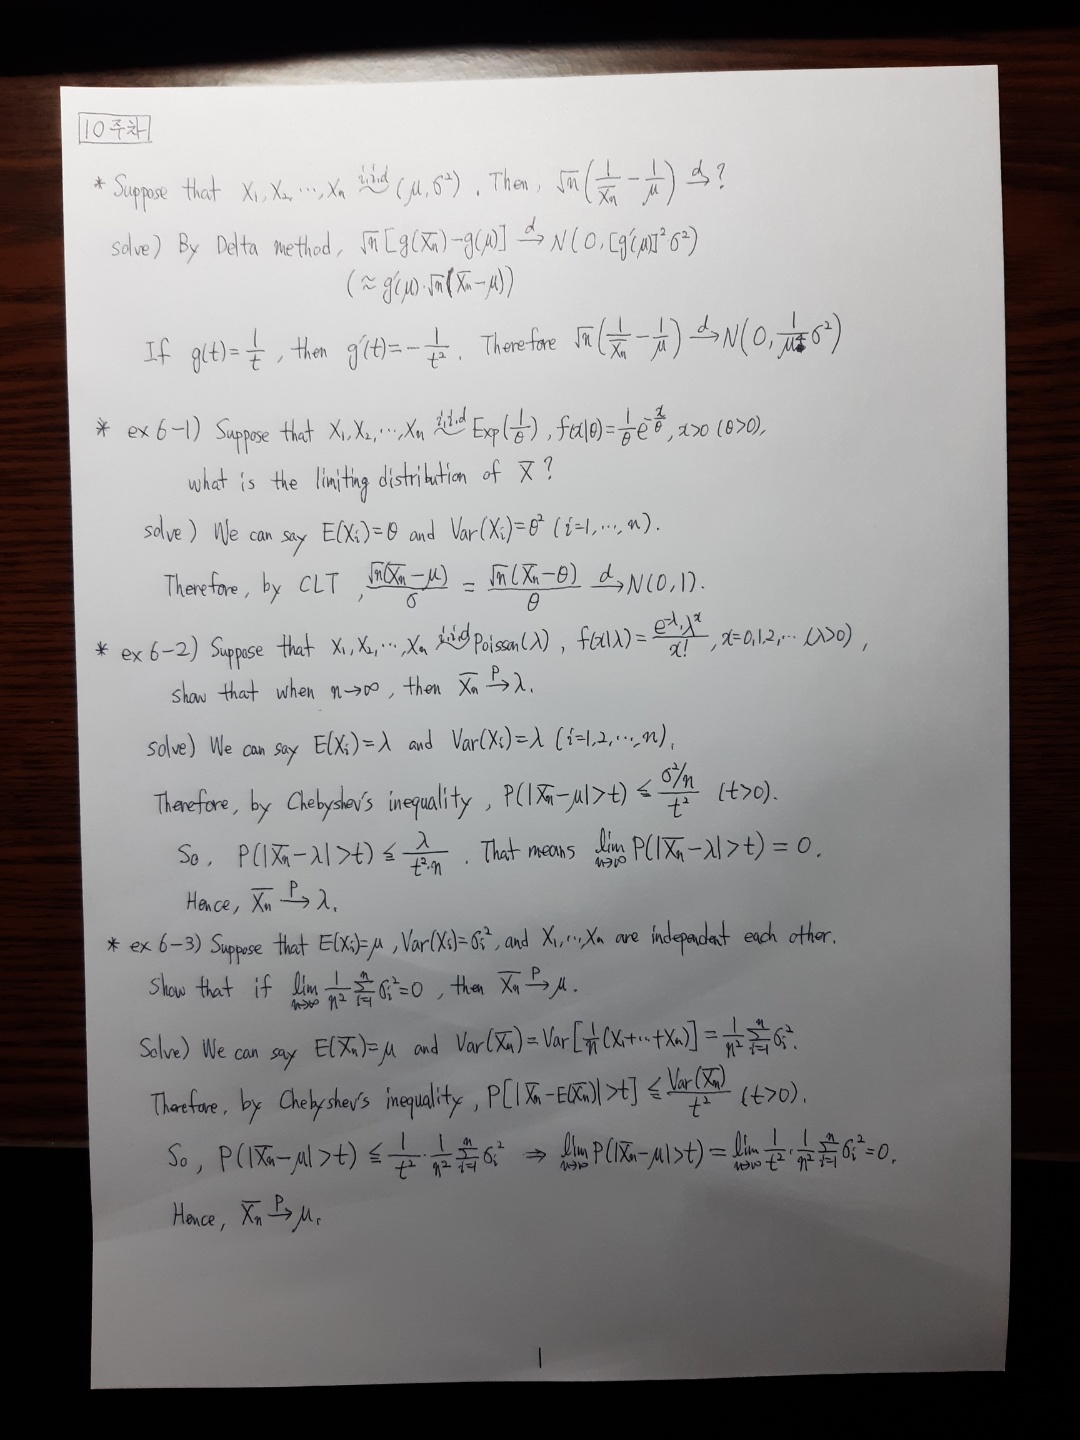 10주차
* Suppose that X₁, X₂, ⋯, Xₙ i.i.d ~ (μ, σ²). Then, √n(1/X̅ₙ − 1/μ) →d ?
solve) By Delta method, √n[g(X̅ₙ)−g(μ)] →d N(0, [g′(μ)]²σ²)
(≈ g′(μ)·√n(X̅ₙ−μ))
If g(t)=1/t, then g′(t)=−1/t². Therefore √n(1/X̅ₙ − 1/μ) →d N(0, 1/μ⁴ σ²)
* ex 6-1) Suppose that X₁, X₂, ⋯, Xₙ i.i.d ~ Exp(1/θ), f(x|θ)=1/θ e^(−x/θ), x>0 (θ>0),
what is the limiting distribution of X̅?
solve) We can say E(Xᵢ)=θ and Var(Xᵢ)=θ² (i=1, ⋯, n).
Therefore, by CLT, √n(X̅ₙ−μ)/σ = √n(X̅ₙ−θ)/θ →d N(0,1).
* ex 6-2) Suppose that X₁, X₂, ⋯, Xₙ i.i.d ~ Poisson(λ), f(x|λ)= e^(−λ)·λ^x / x!, x=0,1,2,⋯ (λ>0),
show that when n→∞, then X̅ₙ →P λ.
solve) We can say E(Xᵢ)=λ and Var(Xᵢ)=λ (i=1,2,⋯,n).
Therefore, by Chebyshev's inequality, P(|X̅ₙ−μ|>t) ≦ (σ²/n)/t² (t>0).
So, P(|X̅ₙ−λ|>t) ≦ λ/(t²·n). That means lim n→∞ P(|X̅ₙ−λ|>t) = 0.
Hence, X̅ₙ →P λ.
* ex 6-3) Suppose that E(Xᵢ)=μ, Var(Xᵢ)=σᵢ², and X₁, ⋯, Xₙ are independent each other.
Show that if lim n→∞ 1/n² Σ_{i=1}^{n} σᵢ²=0, then X̅ₙ →P μ.
Solve) We can say E(X̅ₙ)=μ and Var(X̅ₙ)=Var[1/n (X₁+⋯+Xₙ)] = 1/n² Σ_{i=1}^{n} σᵢ².
Therefore, by Chebyshev's inequality, P[|X̅ₙ−E(X̅ₙ)|>t] ≦ Var(X̅ₙ)/t² (t>0).
So, P(|X̅ₙ−μ|>t) ≦ 1/t² · 1/n² Σ_{i=1}^{n} σᵢ² ⇒ lim n→∞ P(|X̅ₙ−μ|>t) = lim n→∞ 1/t² · 1/n² Σ_{i=1}^{n} σᵢ²=0.
Hence, X̅ₙ →P μ.
1